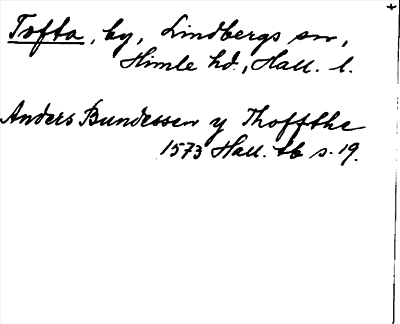 Tofta, by, Lindbergs sn,
Himle hd., Hall. l.
Anders Bundessen y Thoffthe
1573 Hall. tb s. 19.